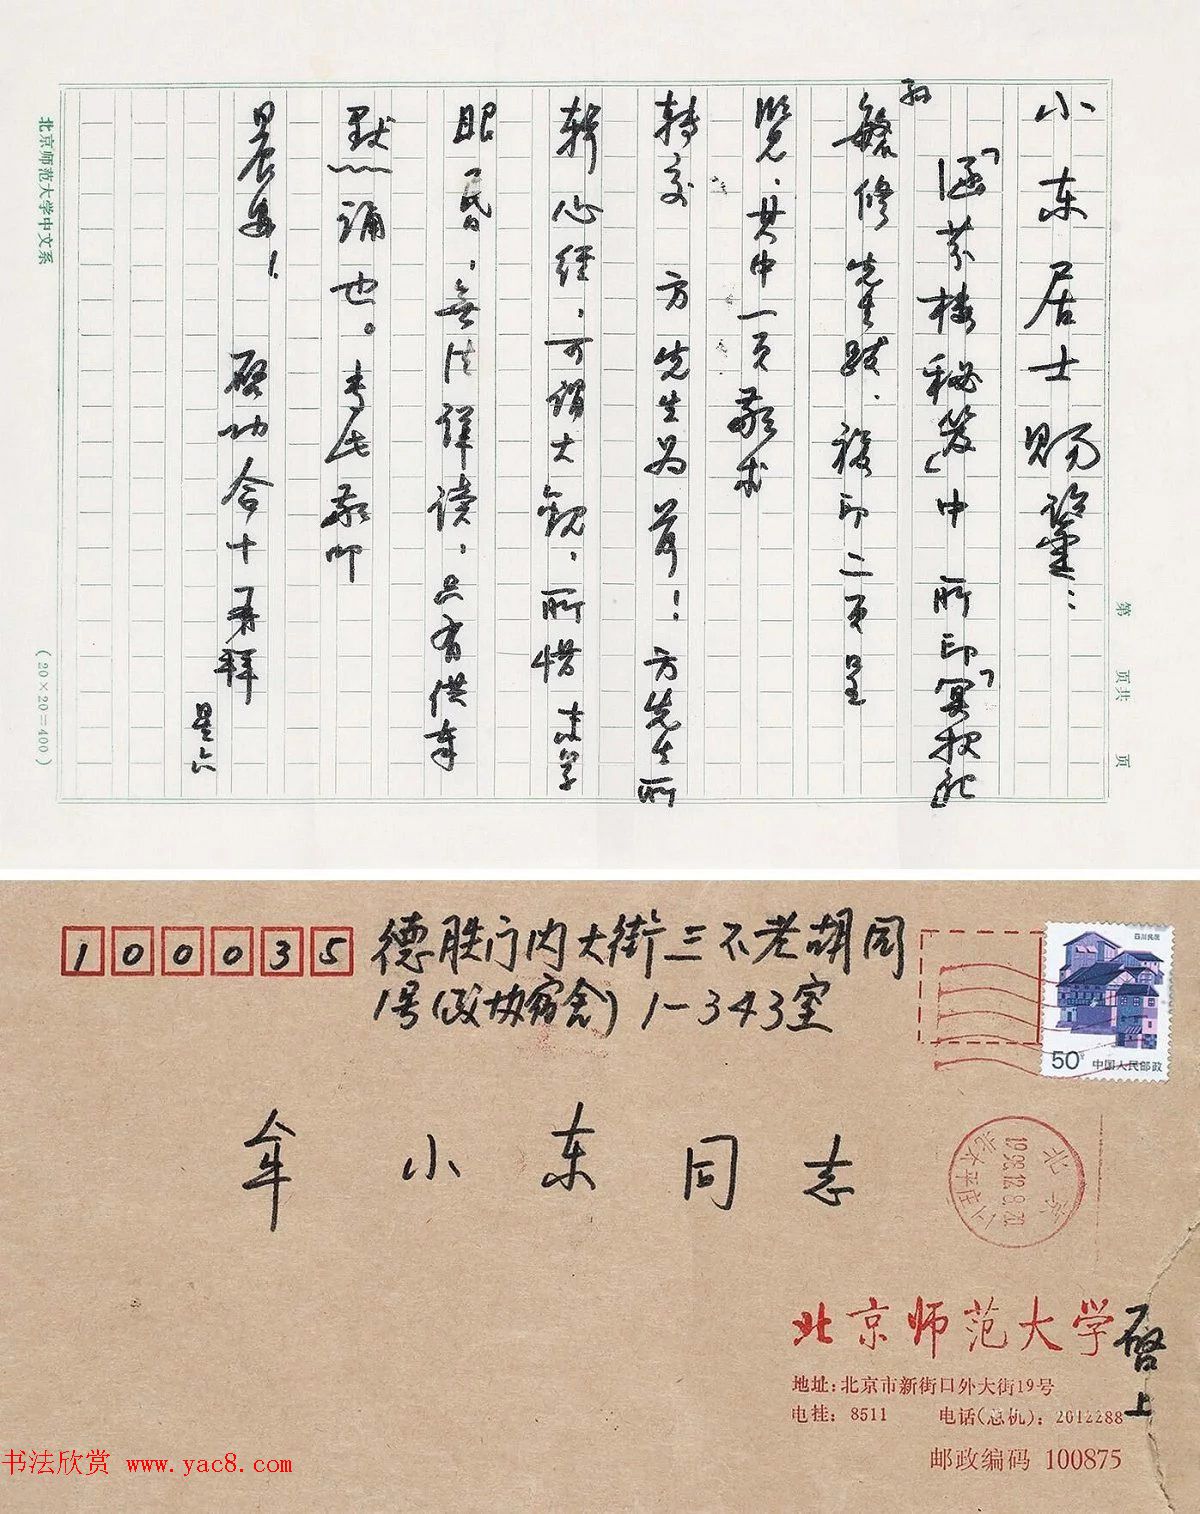 小东居士赐鉴：
「涵芬楼秘笈」中所印「冥报记」
孙
毓修先生跋，複印二页呈
览，其中一页敬求
转交 方先生为荷！方先生所
辑心经，可谓大觀，所惜末学
眼昏，無法详读，只有供奉
默诵也。专此敬叩
晨安！ 启功合十再拜
星六
北京师范大学中文系
（20×20=400）
第 页共 页
100035
德胜门内大街三不老胡同
1号（政协宿舍）1-343室
四川民居
50分
中国人民邮政
伞小东同志
北京
北太平庄
北京师范大学
启上
地址：北京市新街口外大街19号
电挂：8511 电话（总机）：2012288
邮政编码 100875
书法欣赏 www.yac8.com